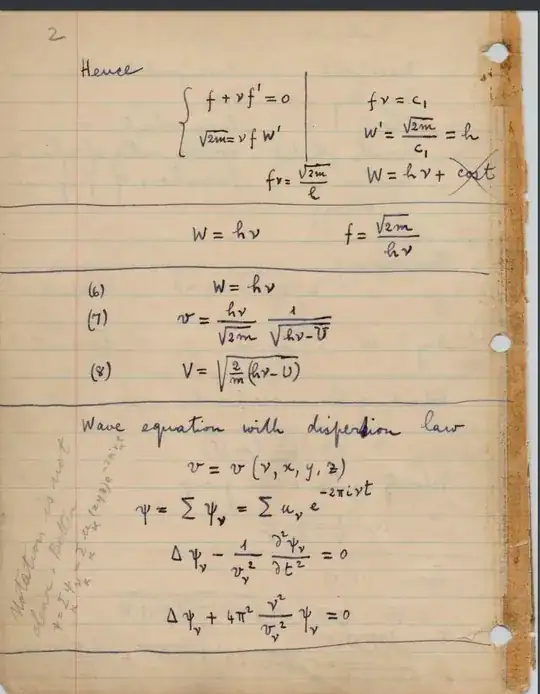 2
Hence
f + ν f' = 0
f ν = c₁
√2m = ν f W'
W' = √2m / c₁ = h
f ν = √2m / h
W = h ν + cost
W = h ν
f = √2m / h ν
(6) W = h ν
(7) v = hν / √2m 1 / √(hν − U)
(8) V = √(2/m (hν − U))
Wave equation with dispersion law
v = v (ν, x, y, z)
ψ = Σ ψ_ν = Σ u_ν e^(−2πiνt)
Δ ψ_ν − 1/v_ν² ∂²ψ_ν/∂t² = 0
Δ ψ_ν + 4π² ν²/v_ν² ψ_ν = 0
Notation is not
clear. Better